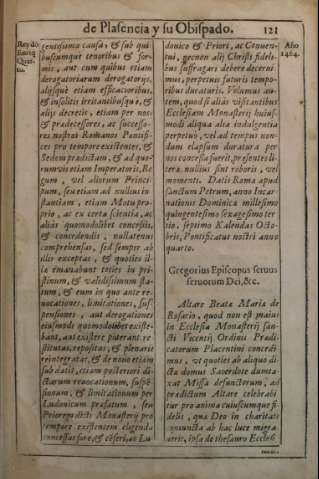 de Plasencia y su Obispado. 121
Rey dõ
Enriq
Quar
to.
gentissima causa, & sub qui
buscumque tenoribus & for-
mis, aut cum quibus etiam
derogatoriarum derogatorijs,
alijsque etiam efficacioribus,
& insolitis irritantibusque, &
alijs decretis, etiam per nos
& prædecessores, ac successo-
res nostros Romanos Pontifi-
ces pro tempore existentes, &
Sedem prædictam, & ad quo-
rumvis etiam Imperatoris, Re
gum, vel aliorum Princi-
pum, seu etiam ad nullius in-
stantiam, etiam Motu pro-
prio, ac ex certa scientia, ac
aliàs quomodolibet concessis,
& concedendis, nullatenus
comprehensas, sed semper ab
illis exceptas, & quoties il-
la emanabunt toties in pri-
stinum, & validissimum sta-
tum, & eum in quo ante re-
uocationes, limitationes, sus
pensiones, aut derogationes
eiusmodi quomodolibet existe-
bant, aut existere poterant re-
stitutas, repositas, & plenariè
reintegratas, & de nouo etiam
sub data, etiam posteriori di-
ctarum reuocationum, suspē-
sionum, & limitationum per
Ludouicum præfatum, seu
Prioregdicti Monasterij pro
tempore existentem eligenda
concessas fore, & cōseri, ac Lu-
douico & Priori, ac Conuen-
tui, necnon alij Christi fideli-
bus suffragari debere decerni
mus, perpetuis futuris tempo-
ribus duraturis. Volumus au-
tem, quod si aliàs visitantibus
Ecclesiam Monasterij huius-
modi aliqua alia indulgentia
perpetuo, vel ad tempus non-
dum elapsum duratura per
nos concessa fuerit, præsentes li-
teræ nullius sint roboris, vel
momenti. Datis Romæ apud
Sanctum Petrum, anno Incar
nationis Dominicæ millesimo
quingentesimo sexagesimo ter
tio, septimo Kalendas Octo-
bris, Pontificatus nostri anno
quarto.
Año
1464.
Gregorius Episcopus seruus
seruorum Dei, &c.
Altare Beatæ Mariæ de
Rosario, quod non est maius
in Ecclesia Monasterij San-
cti Vicentij Ordinis Prædi
catorum Placentini concedi
mus, vt quoties ab aliquo di
cta domus Sacerdote dumta-
xat Missa defunctorum, ad
prædictum Altare celebrabi
tur pro anima cuiuscumque fi-
delis, quæ Deo in charitate
coniuncta ab hac luce migra-
uerit, ipsa de thesauro Ecclesiæ